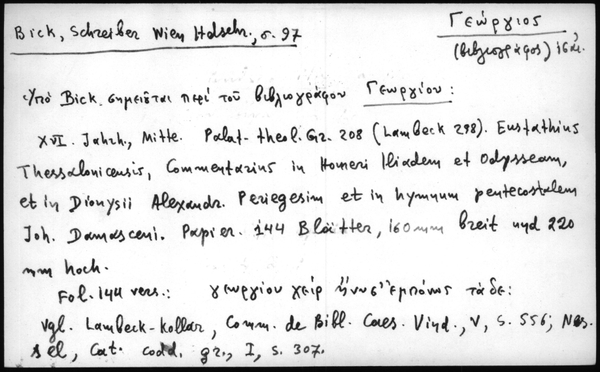 Bick, Schreiber Wien Hdschr., σ. 97
Γεώργιος
(βιβλιογράφος) ις΄αἰ.
Ὑπὸ Bick σημειοῦται περὶ τοῦ βιβλιογράφου Γεωργίου:
XVI. Jahrh., Mitte. Palat. theol. Gr. 208 (Lambeck 298). Eustathius
Thessalonicensis, Commentarius in Homeri Iliadem et Odysseam,
et in Dionysii Alexandr. Periegesim et in hymnum pentecostalem
Joh. Damasceni. Papier. 144 Blätter, 160 mm breit und 220
mm hoch.
Fol. 144 vers.: γεωργίου χεὶρ ἤνυσ' ἐμπόνως τάδε:
Vgl. Lambeck-Kollar, Comm. de Bibl. Caes. Vind., V, S. 556; Nes-
sel, Cat. codd. gr., I, S. 307.